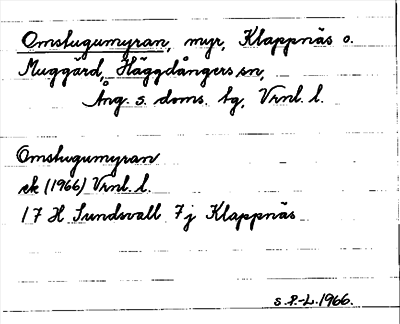 Omstugumyran, myr, Klappnäs o.
Muggärd, Häggdångers sn,
Ång. s. doms. tg, Vrnl. l.
Omstugumyran
ek (1966) Vrnl. l.
17 H Sundsvall 7j Klappnäs
S.P.-L. 1966.